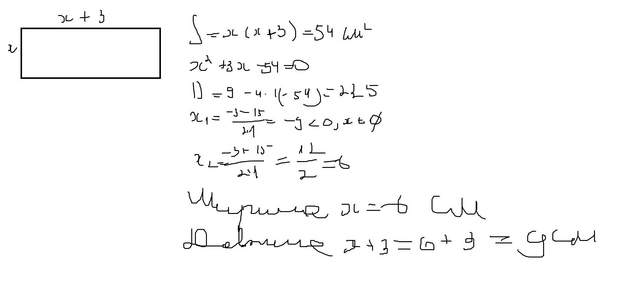 x + 3
x
S = x (x+3) = 54 см²
x² + 3x - 54 = 0
D = 9 - 4 · 1(-54) = 225
x₁ = (-3-15)/(2·1) = -9 < 0, x ∈ ∅
x₂ = (-3+15)/(2·1) = 12/2 = 6
Ширина x = 6 см
Длина x + 3 = 6 + 3 = 9 см